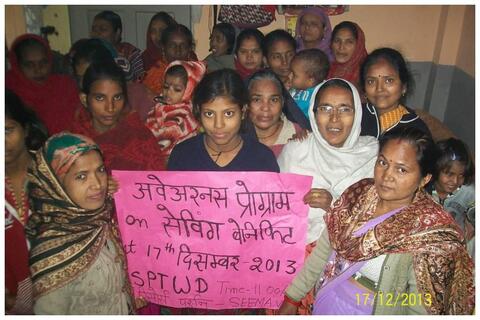 अवेअरनस प्रोग्राम
on सेविंग बेनिफिट
at 17th दिसम्बर-2013
SPTWD Time-11:00
पर्सन - SEEMA
17/12/2013